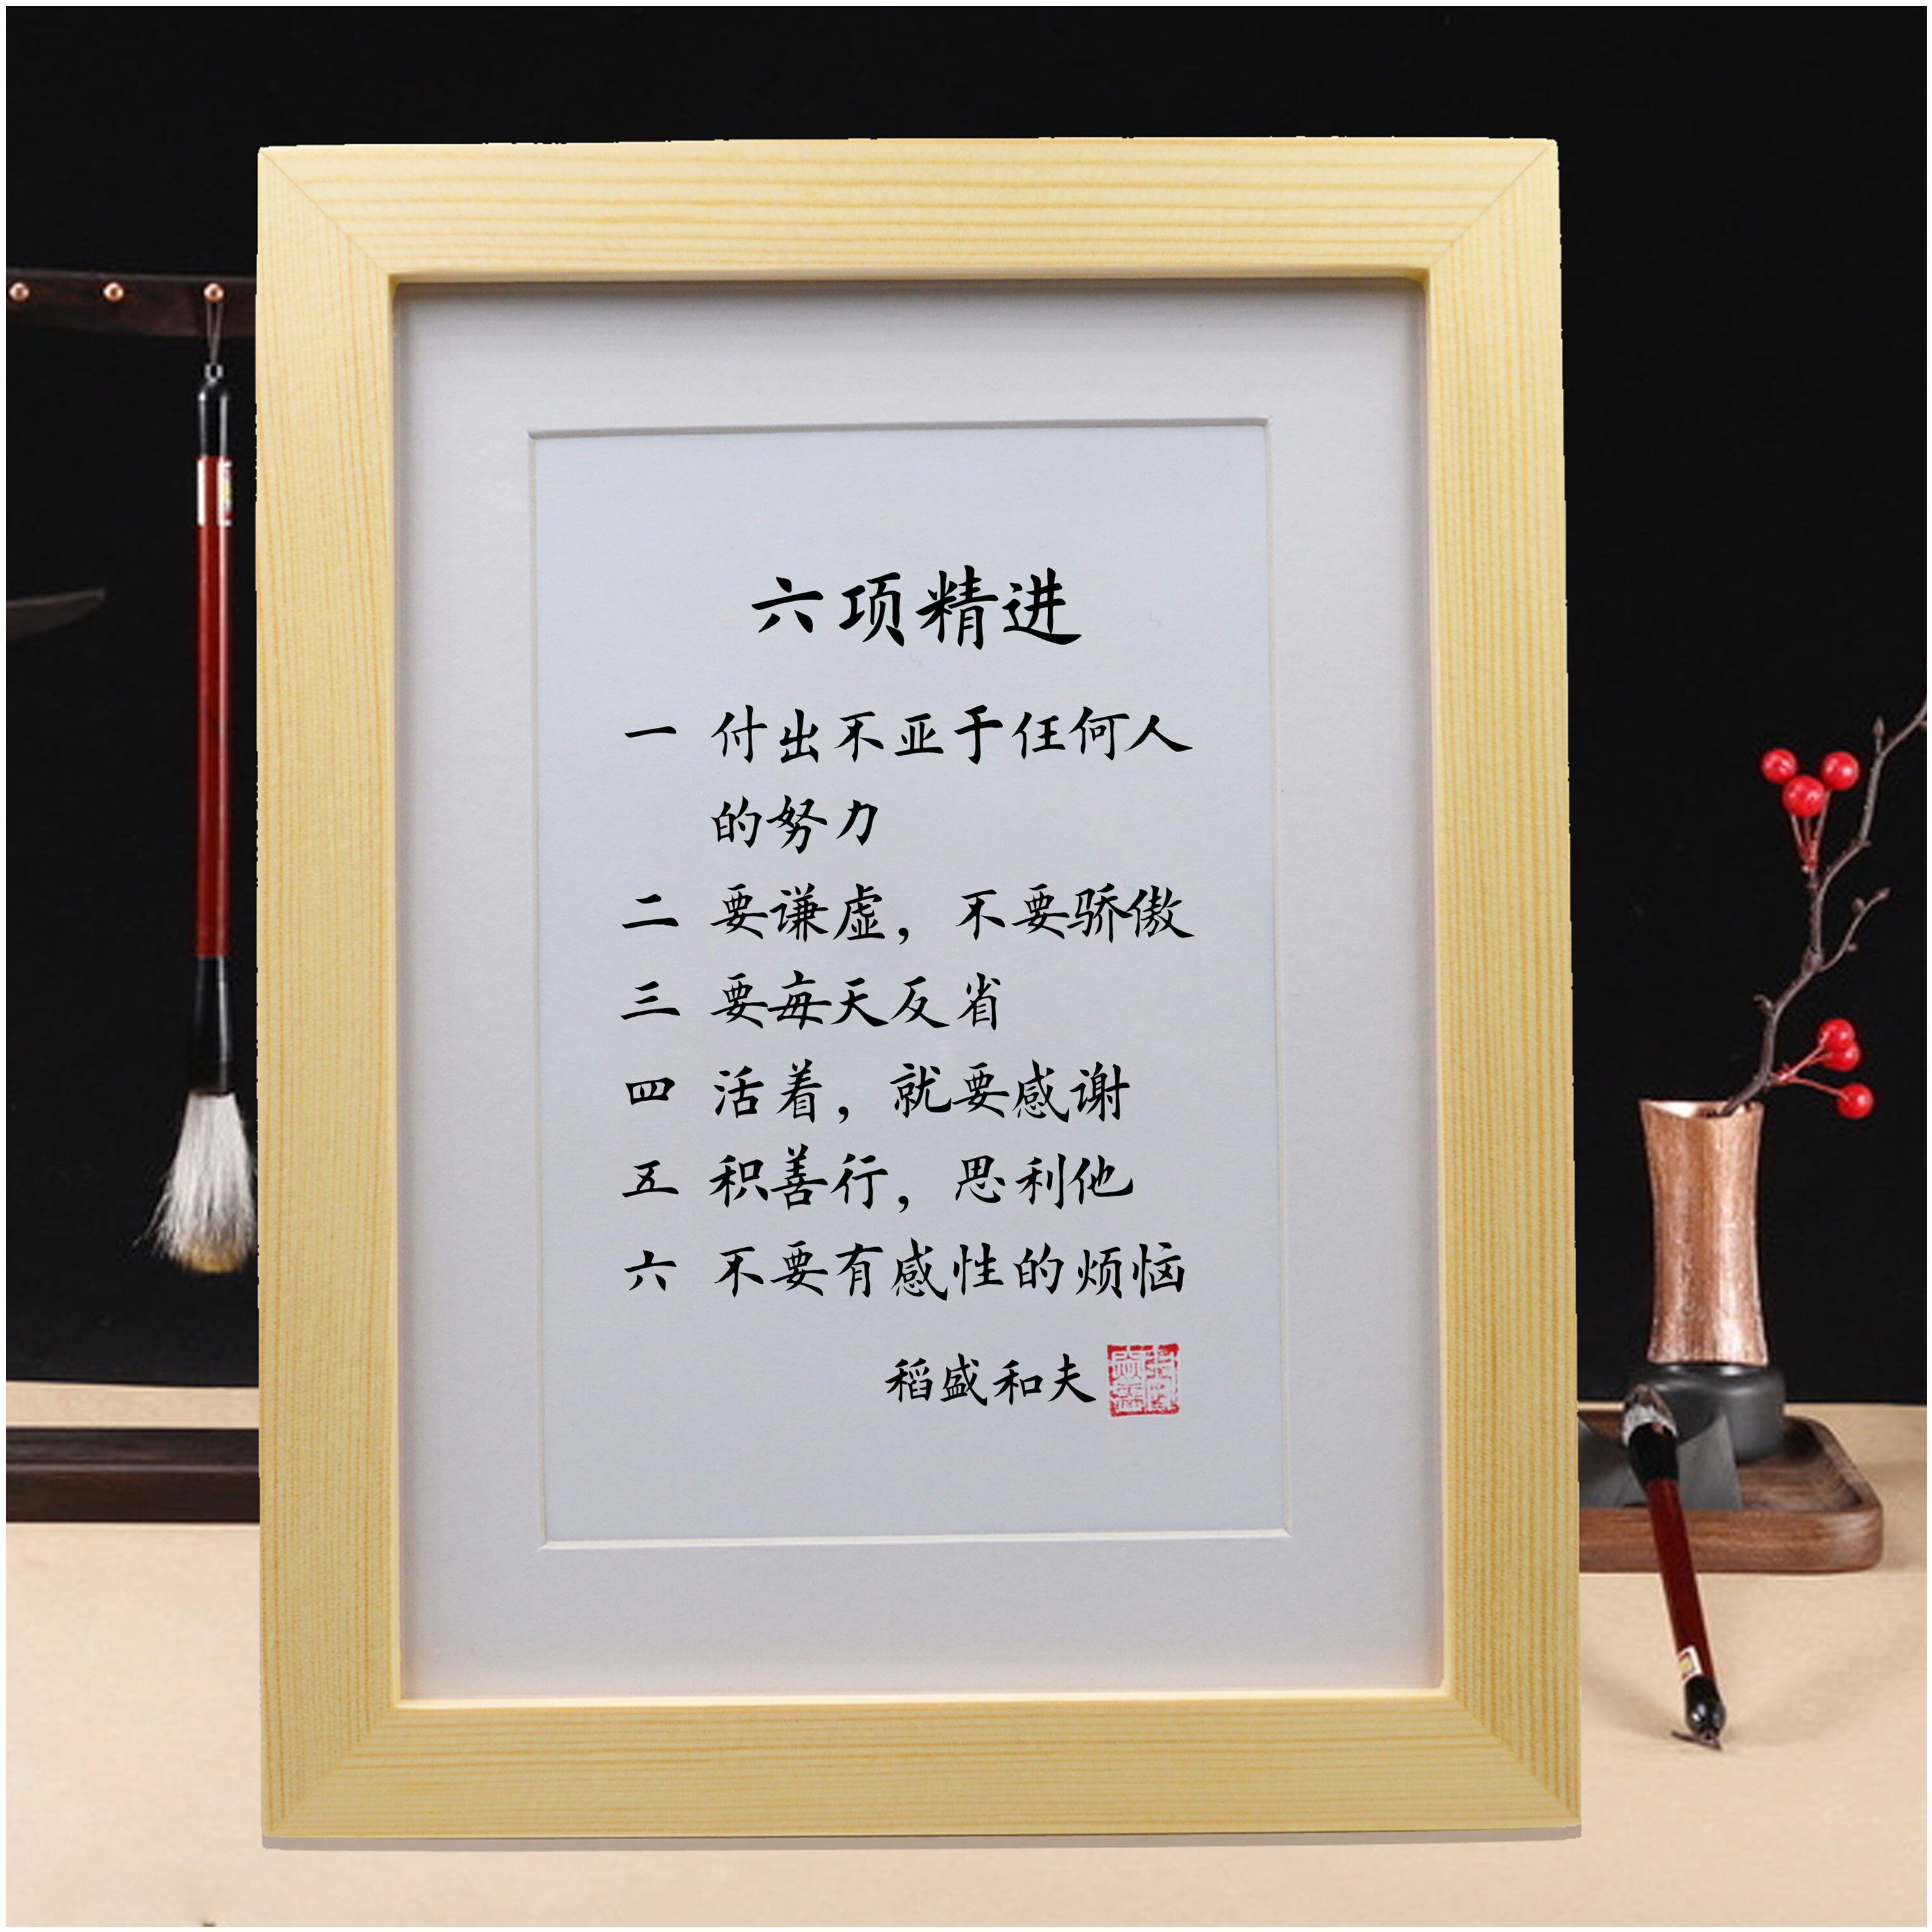 六项精进
一 付出不亚于任何人
的努力
二 要谦虚，不要骄傲
三 要每天反省
四 活着，就要感谢
五 积善行，思利他
六 不要有感性的烦恼
稻盛和夫